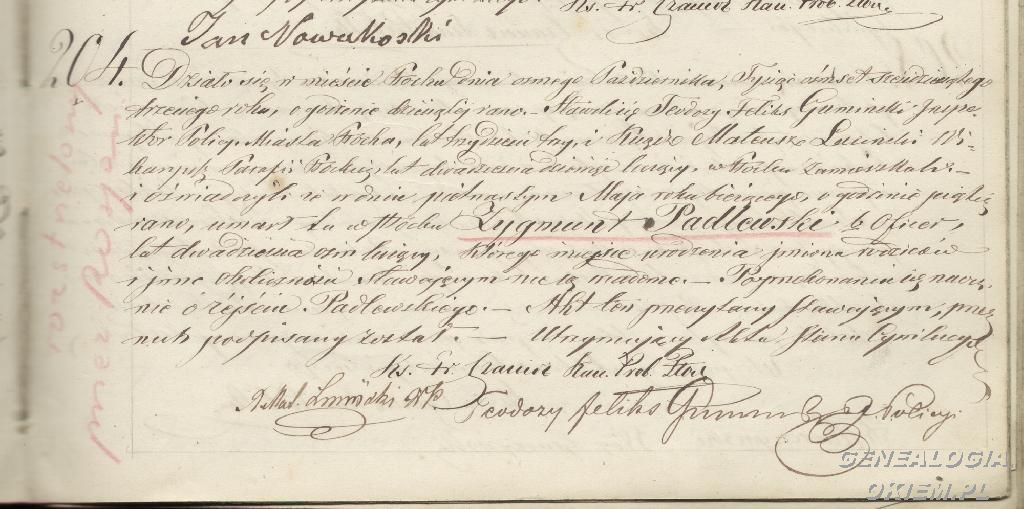 Xs. Fr. Kan. Prob. Płoc.
Jan Nowakoski
204. Działo się w mieście Płocku dnia osmego Października, Tysiąc ośmset sześćdziesiątego
trzeciego roku, o godzinie dziesiątej rano.– Stawili się Teodozy Feliks Gumiński Inspe-
ktor Policyi Miasta Płocka, lat trzydzieści trzy, i Xiądz Mateusz Wi-
karyusz Parafii Płockiej lat dwadzieścia dziewięć liczący, w Płocku zamieszkali.–
i oświadczyli że w dniu piętnastym Maja roku bieżącego, o godzinie piątej
rano, umarł tu w Płocku Zygmunt Padlewski b Oficer,
lat dwadzieścia osm liczący, którego miejsce urodzenia imiona rodziców
i inne okoliczności Stawającym nie są wiadome.– Po przekonaniu się naocz-
nie o zejściu Padlewskiego.– Akt ten przeczytany Stawającym, przez
nich podpisany został.– Utrzymujący Akta Stanu Cywilnego
Xs. Fr. Kan. Prob. Płoc.
X Mat. WP
Teodozy Feliks Policyi
rozstrzelany
przez Rosjan
GENEALOGIA
OKIEM.PL